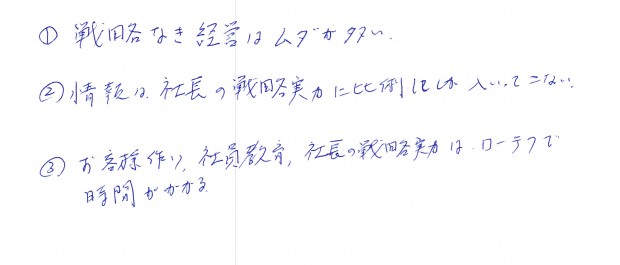 ① 戦略なき経営はムダが多い.
② 情報は、社長の戦略実力に比例してしか入ってこない.
③ お客様作り、社員教育、社長の戦略実力は、ローテクで
時間がかかる.